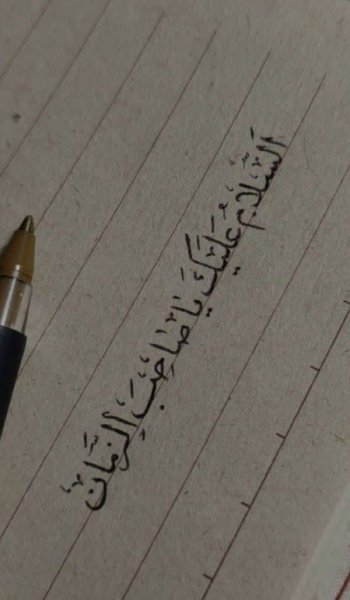 اَلسَّلامُ عَلَيْكَ يا صاحِبَ الزَّمانِ